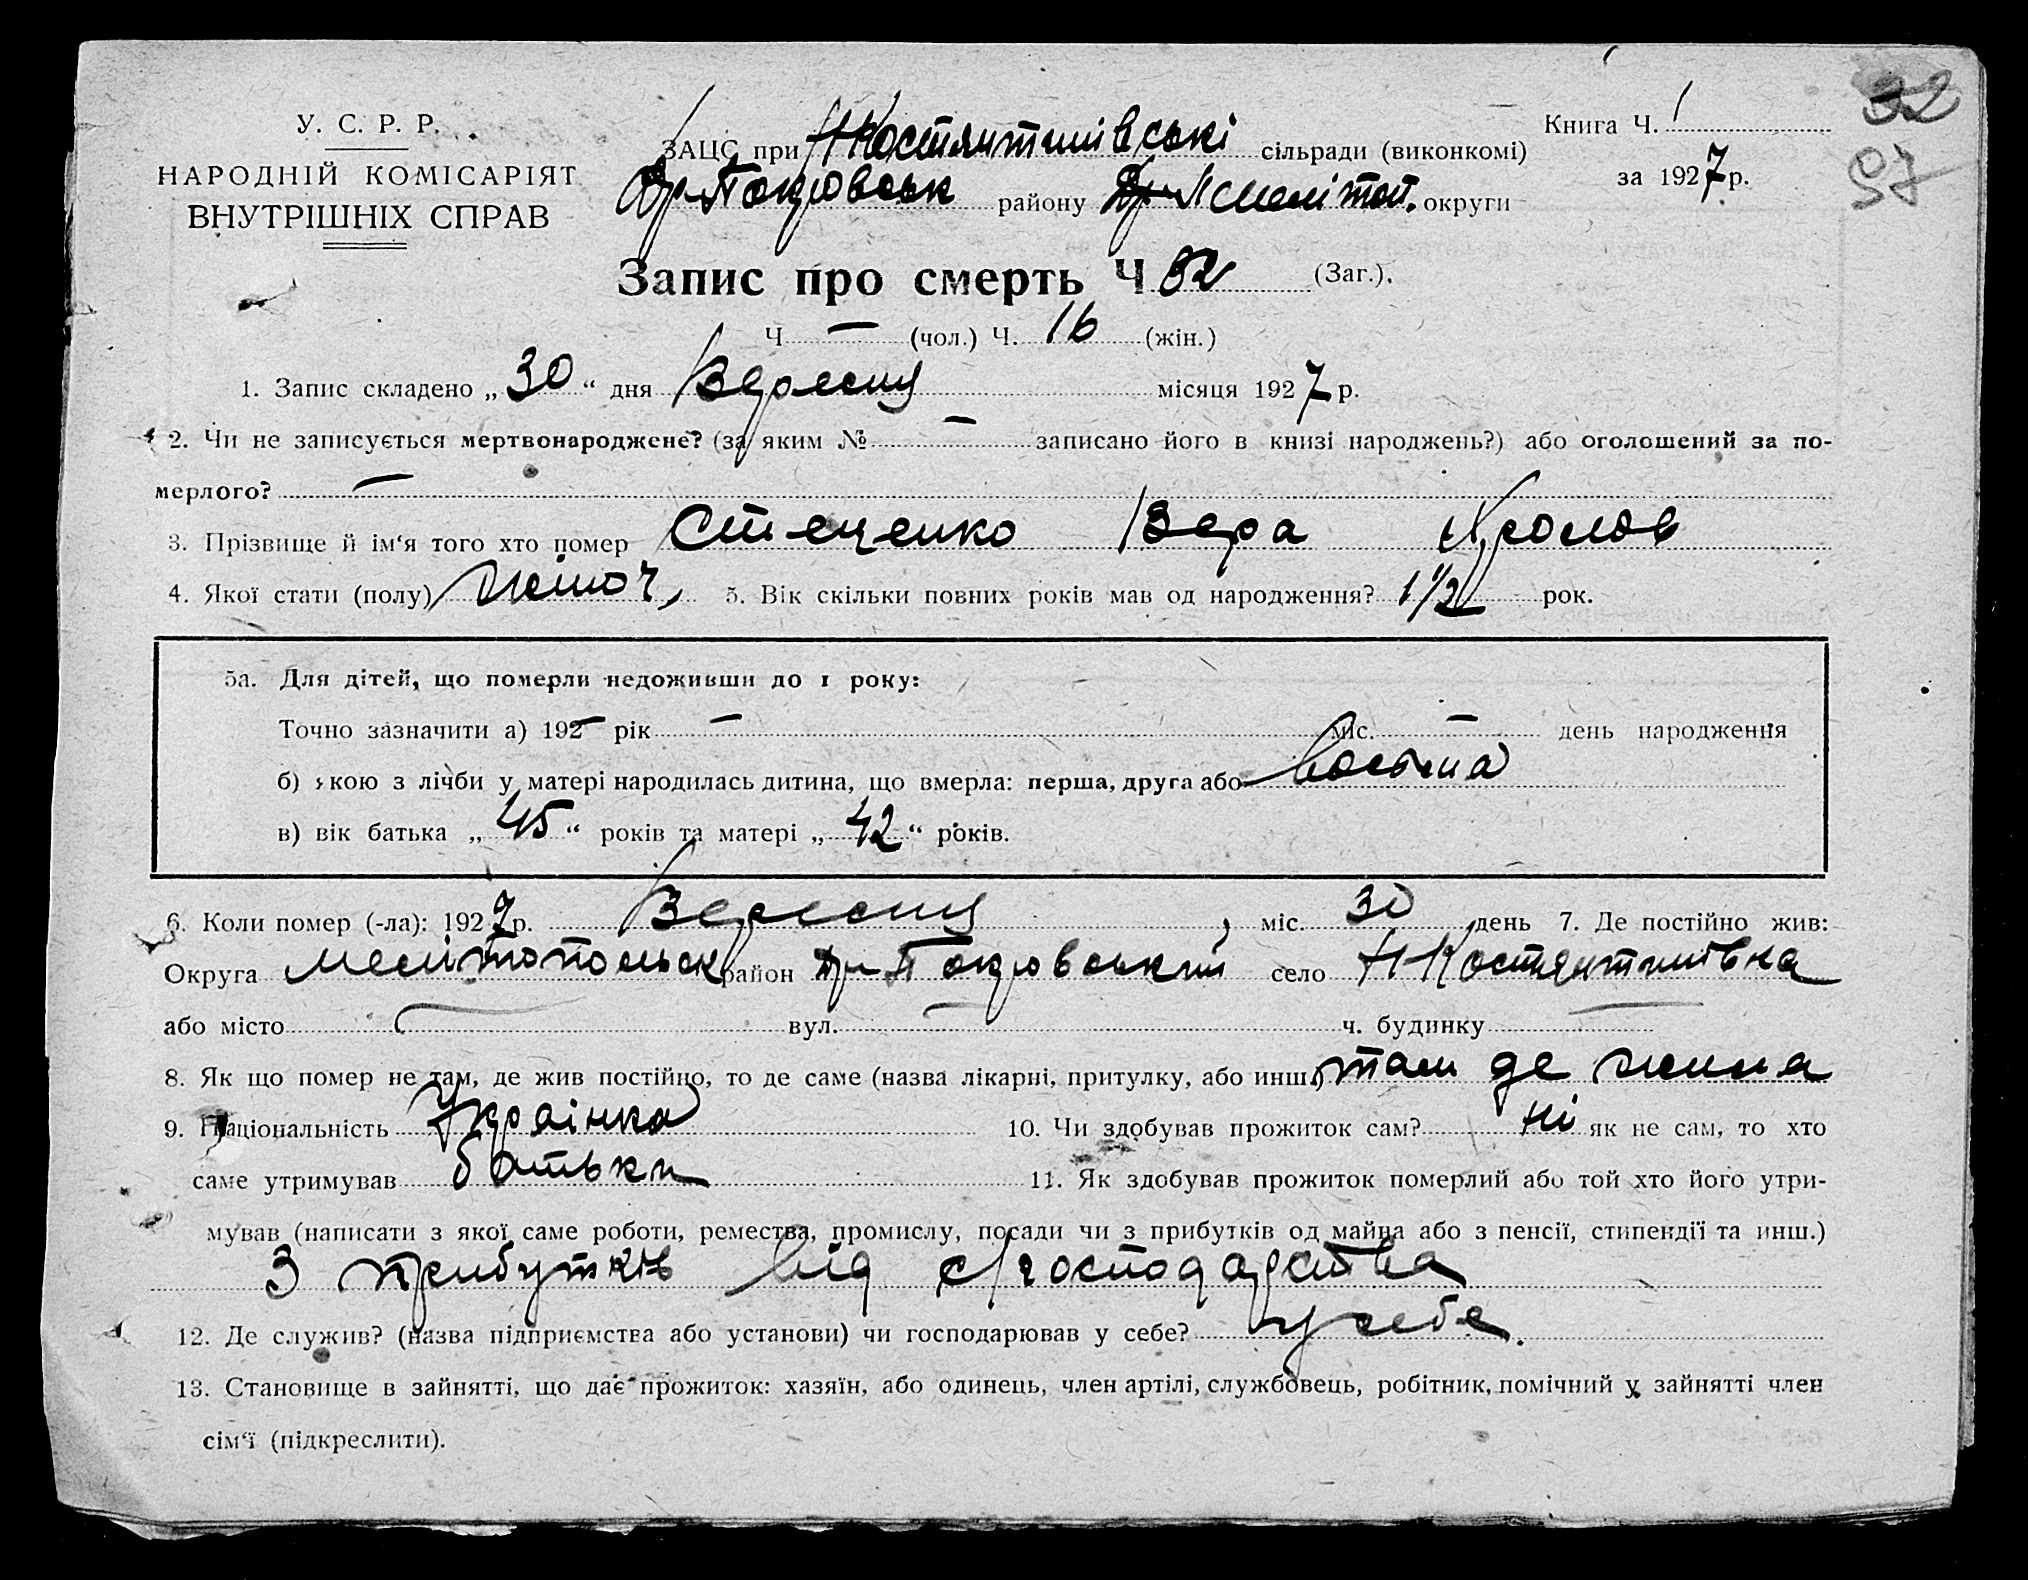 У. С. Р. Р.
НАРОДНІЙ КОМІСАРІЯТ
ВНУТРІШНІХ СПРАВ
ЗАЦС при НКостянтинівські сільради (виконкомі)
Др-Покровськ району Мелітоп. округи
Книга Ч. 1
за 1927 р.
32
97
Запис про смерть Ч 32 (Заг.).
Ч — (чол.) Ч. 16 (жін.)
1. Запис складено „30“ дня Вересня місяця 1927 р.
2. Чи не записується мертвонароджене? (за яким № — записано його в книзі народжень?) або оголошений за по-
мерлого? —
3. Прізвище й ім'я того хто помер Стеценко Вера
4. Якої стати (полу) жіноч, 5. Вік скільки повних років мав од народження? 1 1/2 рок.
5а. Для дітей, що померли недоживши до 1 року:
Точно зазначити а) 192— рік — міс. — день народження
б) якою з лічби у матері народилась дитина, що вмерла: перша, друга або восьма
в) вік батька „45“ років та матері „42“ років.
6. Коли помер (-ла): 1927 р. Вересня, міс. 30 день 7. Де постійно жив:
Округа Мелітопольськ район Др-Покровський село НКостянтинівка
або місто — вул. — ч. будинку —
8. Як що помер не там, де жив постійно, то де саме (назва лікарні, притулку, або инш.) там де жила
9. Національність Українка 10. Чи здобував прожиток сам? ні як не сам, то хто
саме утримував батьки 11. Як здобував прожиток померлий або той хто його утри-
мував (написати з якої саме роботи, ремества, промислу, посади чи з прибутків од майна або з пенсії, стипендії та инш.)
З прибутків від с/господарства
12. Де служив? (назва підприємства або установи) чи господарював у себе? у себе.
13. Становище в зайнятті, що дає прожиток: хазяїн, або одинець, член артілі, службовець, робітник, помічний у зайнятті член
сім'ї (підкреслити).